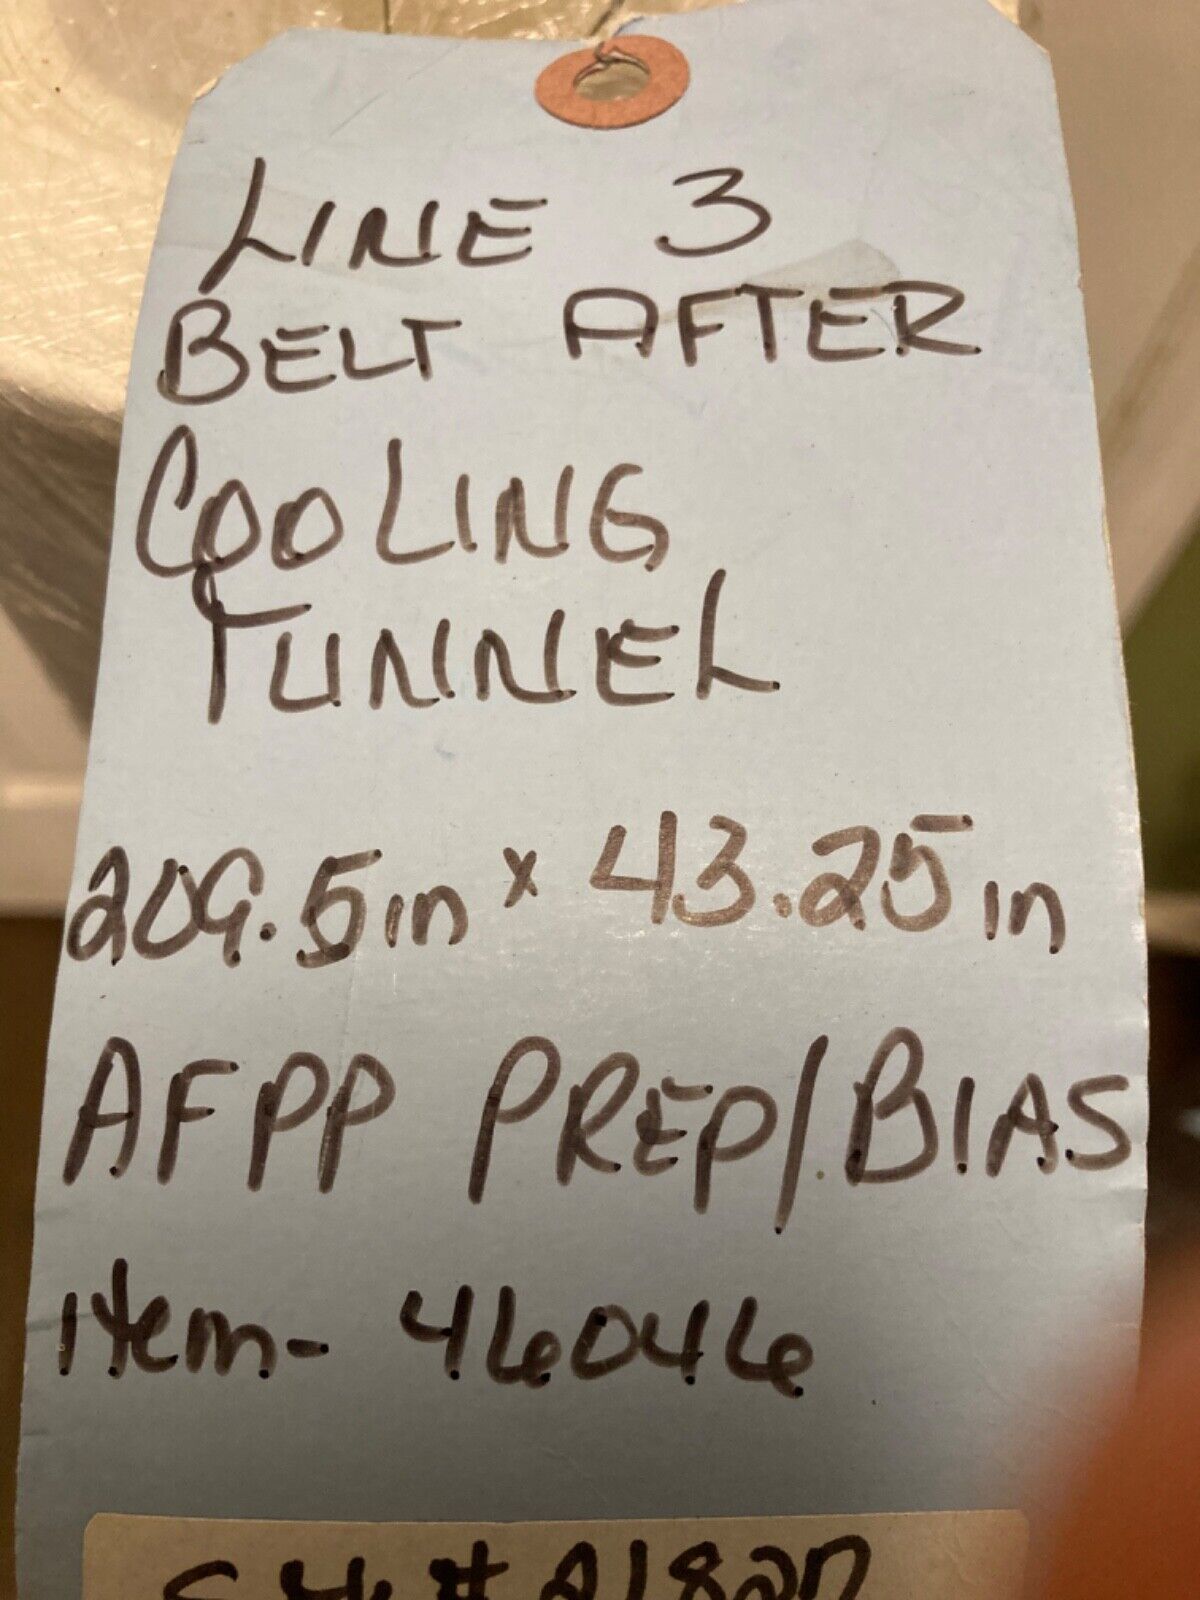 LINE 3
BELT AFTER
COOLING
TUNNEL
209.5in x 43.25in
AFPP PREP/BIAS
item- 46046